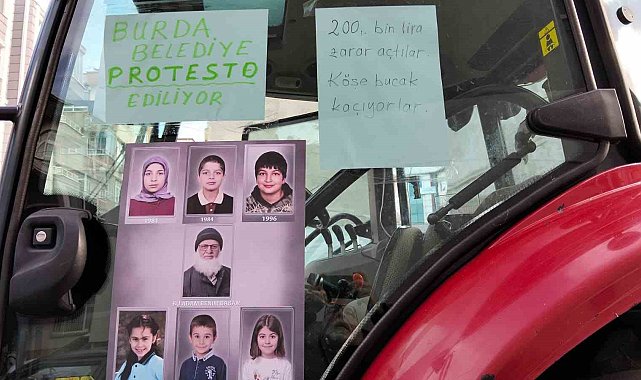 BURDA
BELEDİYE
PROTESTO
EDİLİYOR
200,. bin lira
zarar açtılar.
Köşe bucak
kaçıyorlar.
1981
1984
1996